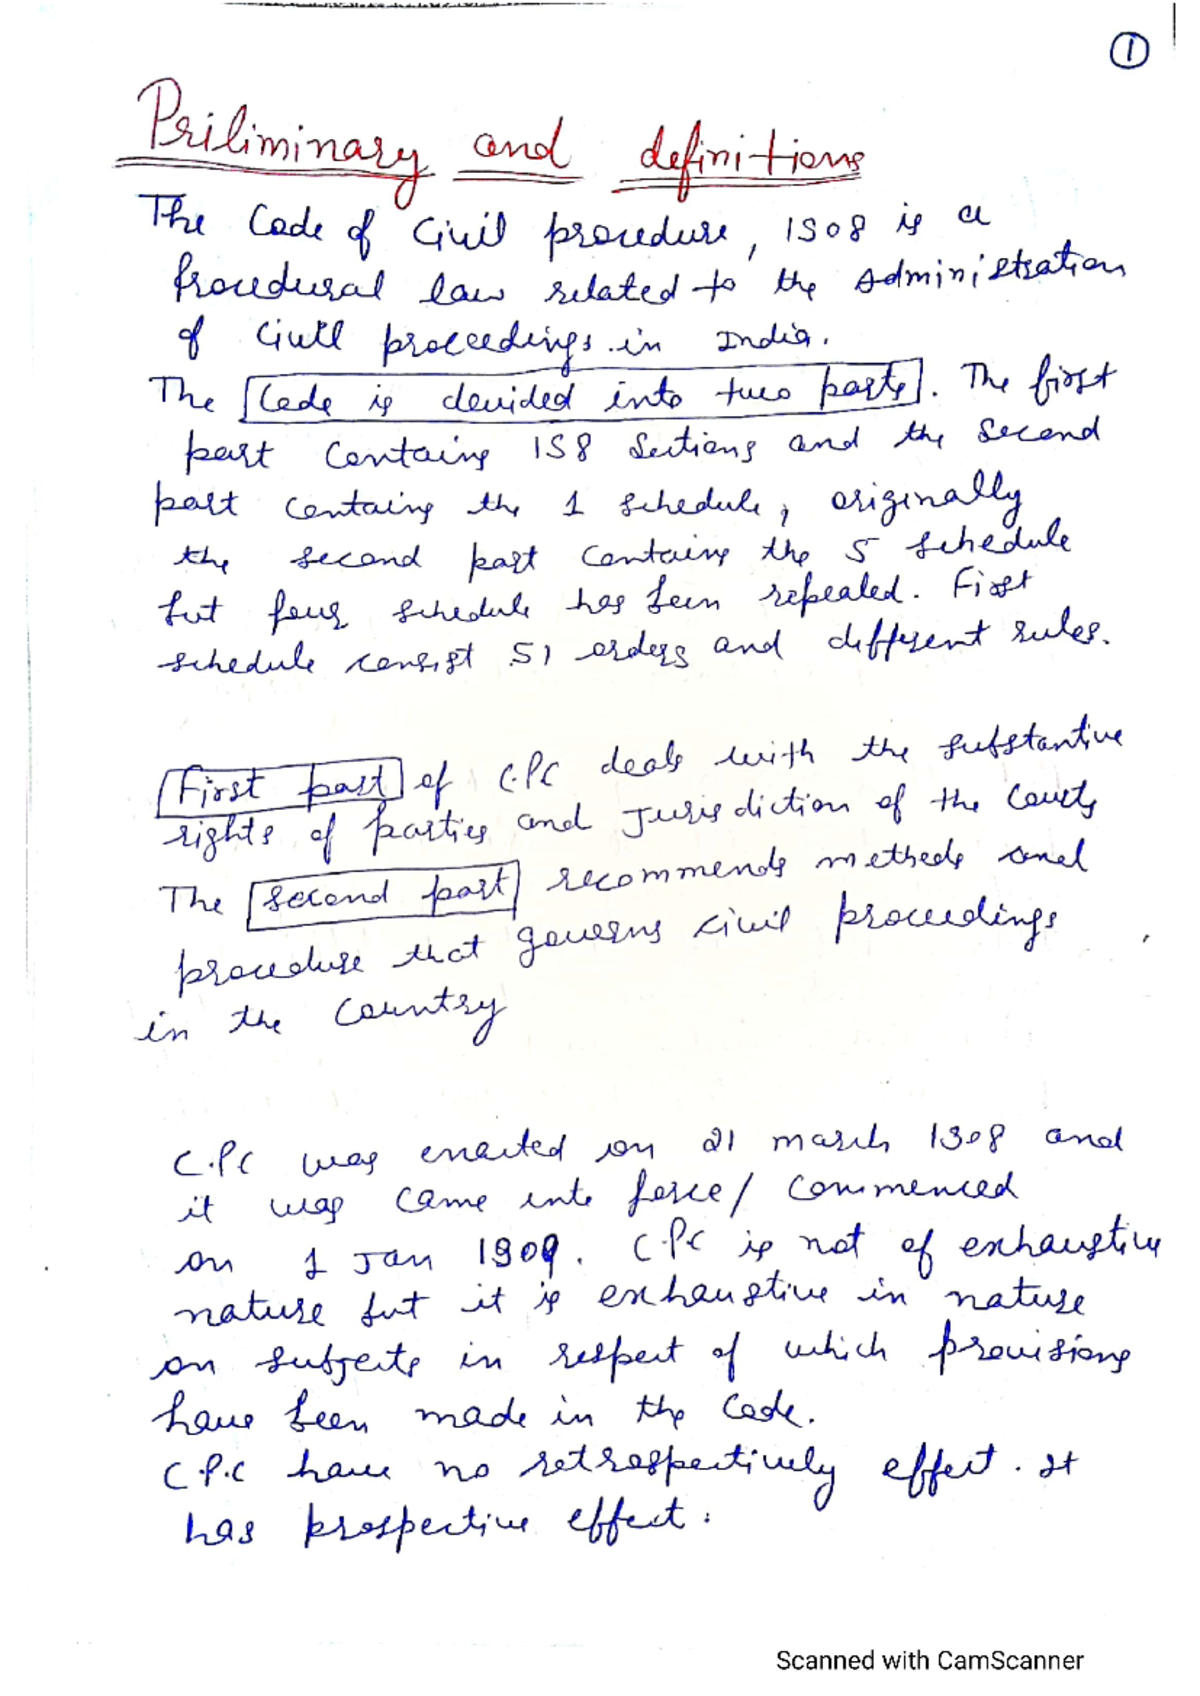 1
Priliminary and definitions
The Code of Civil procedure, 1908 is a
Procedural law related to the Administration
of Civil proceedings in India.
The Code is devided into two parts. The first
part Contains 158 Sections and the Second
part contains the 1 schedule, originally
the second part Contains the 5 schedule
but four schedule has been repealed. First
schedule consist 51 orders and different rules.
First part of C.P.C deals with the substantive
rights of parties and Jurisdiction of the Courts
The Second part recommends methods and
procedure that governs civil proceedings
in the Country
C.P.C was enacted on 21 march 1908 and
it was came into force/ commenced
on 1 Jan 1909. C.P.C is not of exhaustive
nature but it is exhaustive in nature
on subjects in respect of which provisions
have been made in the Code.
C.P.C have no retrospectively effect. It
has prospective effect.
Scanned with CamScanner